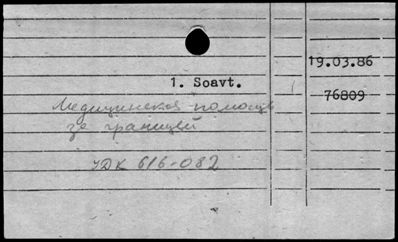 19.03.86
1. Soavt.
76809
Медицинская помощь
за границей
УДК 616-082